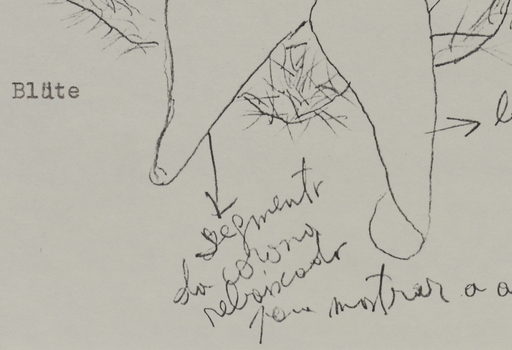 Blüte
segmento
da corona
rebaixado
para mostrar a a